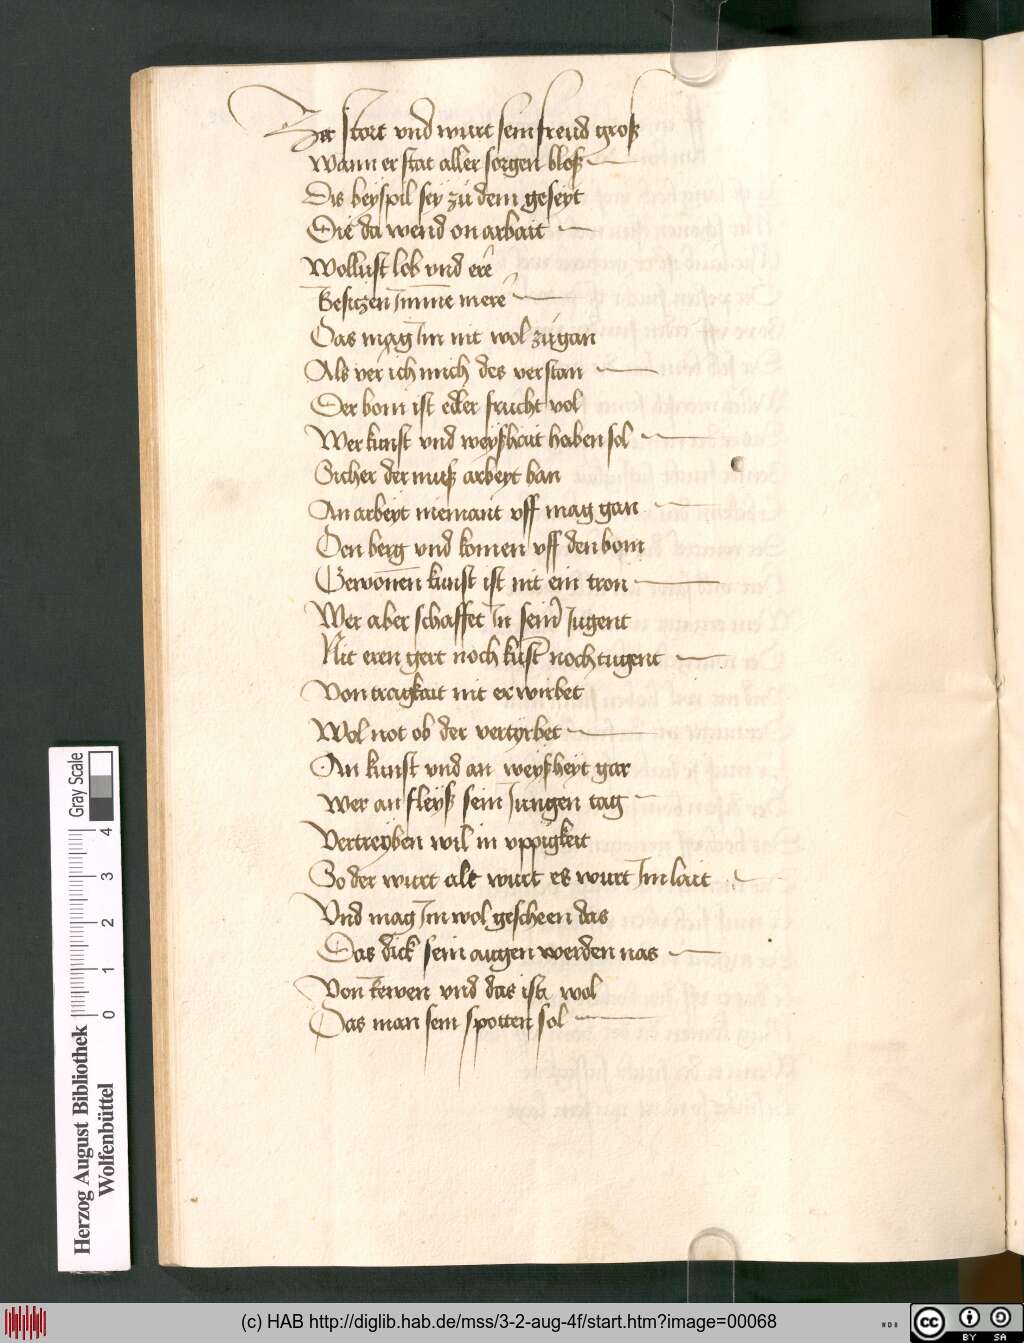 Zer stort vnd wurt sein freud groß
Wann er stat aller sorgen bloß
Dis beyspil sey zů dem geseyt
Die da wend on arbait
Wollust lob vnd ere
Besitzen Imme mere
Das mag Im nit wol zů gan
Als ver ich mich des verstan
Der bom ist edler frucht vol
Wer kunst vnd weyßhait haben sol
Sicher der muß arbeyt han
An arbeyt niemant vff mag gan
Den berg vnd komen vff den bom
Gewonnen kunst ist nit ein tron
Wer aber schaffet In seinr Jugent
Nit eren gert noch kust noch tugent
Von tragkait nit erwirbet
Wol not ob der vertyrbet
An kunst vnd an weyßheyt gar
Wer an fleyß sein Jungen tag
Vertreyben wil in vppigkeit
So der wirt alt wurt es wurt Im lait
Vnd mag Im wol gescheen das
Das dick sein augen werden nas
Von rewen vnd das ist wol
Das man sein spotten sol
Herzog August Bibliothek
Wolfenbüttel
Gray Scale
0 1 2 3 4
(c) HAB http://diglib.hab.de/mss/3-2-aug-4f/start.htm?image=00068
WDB
cc BY SA